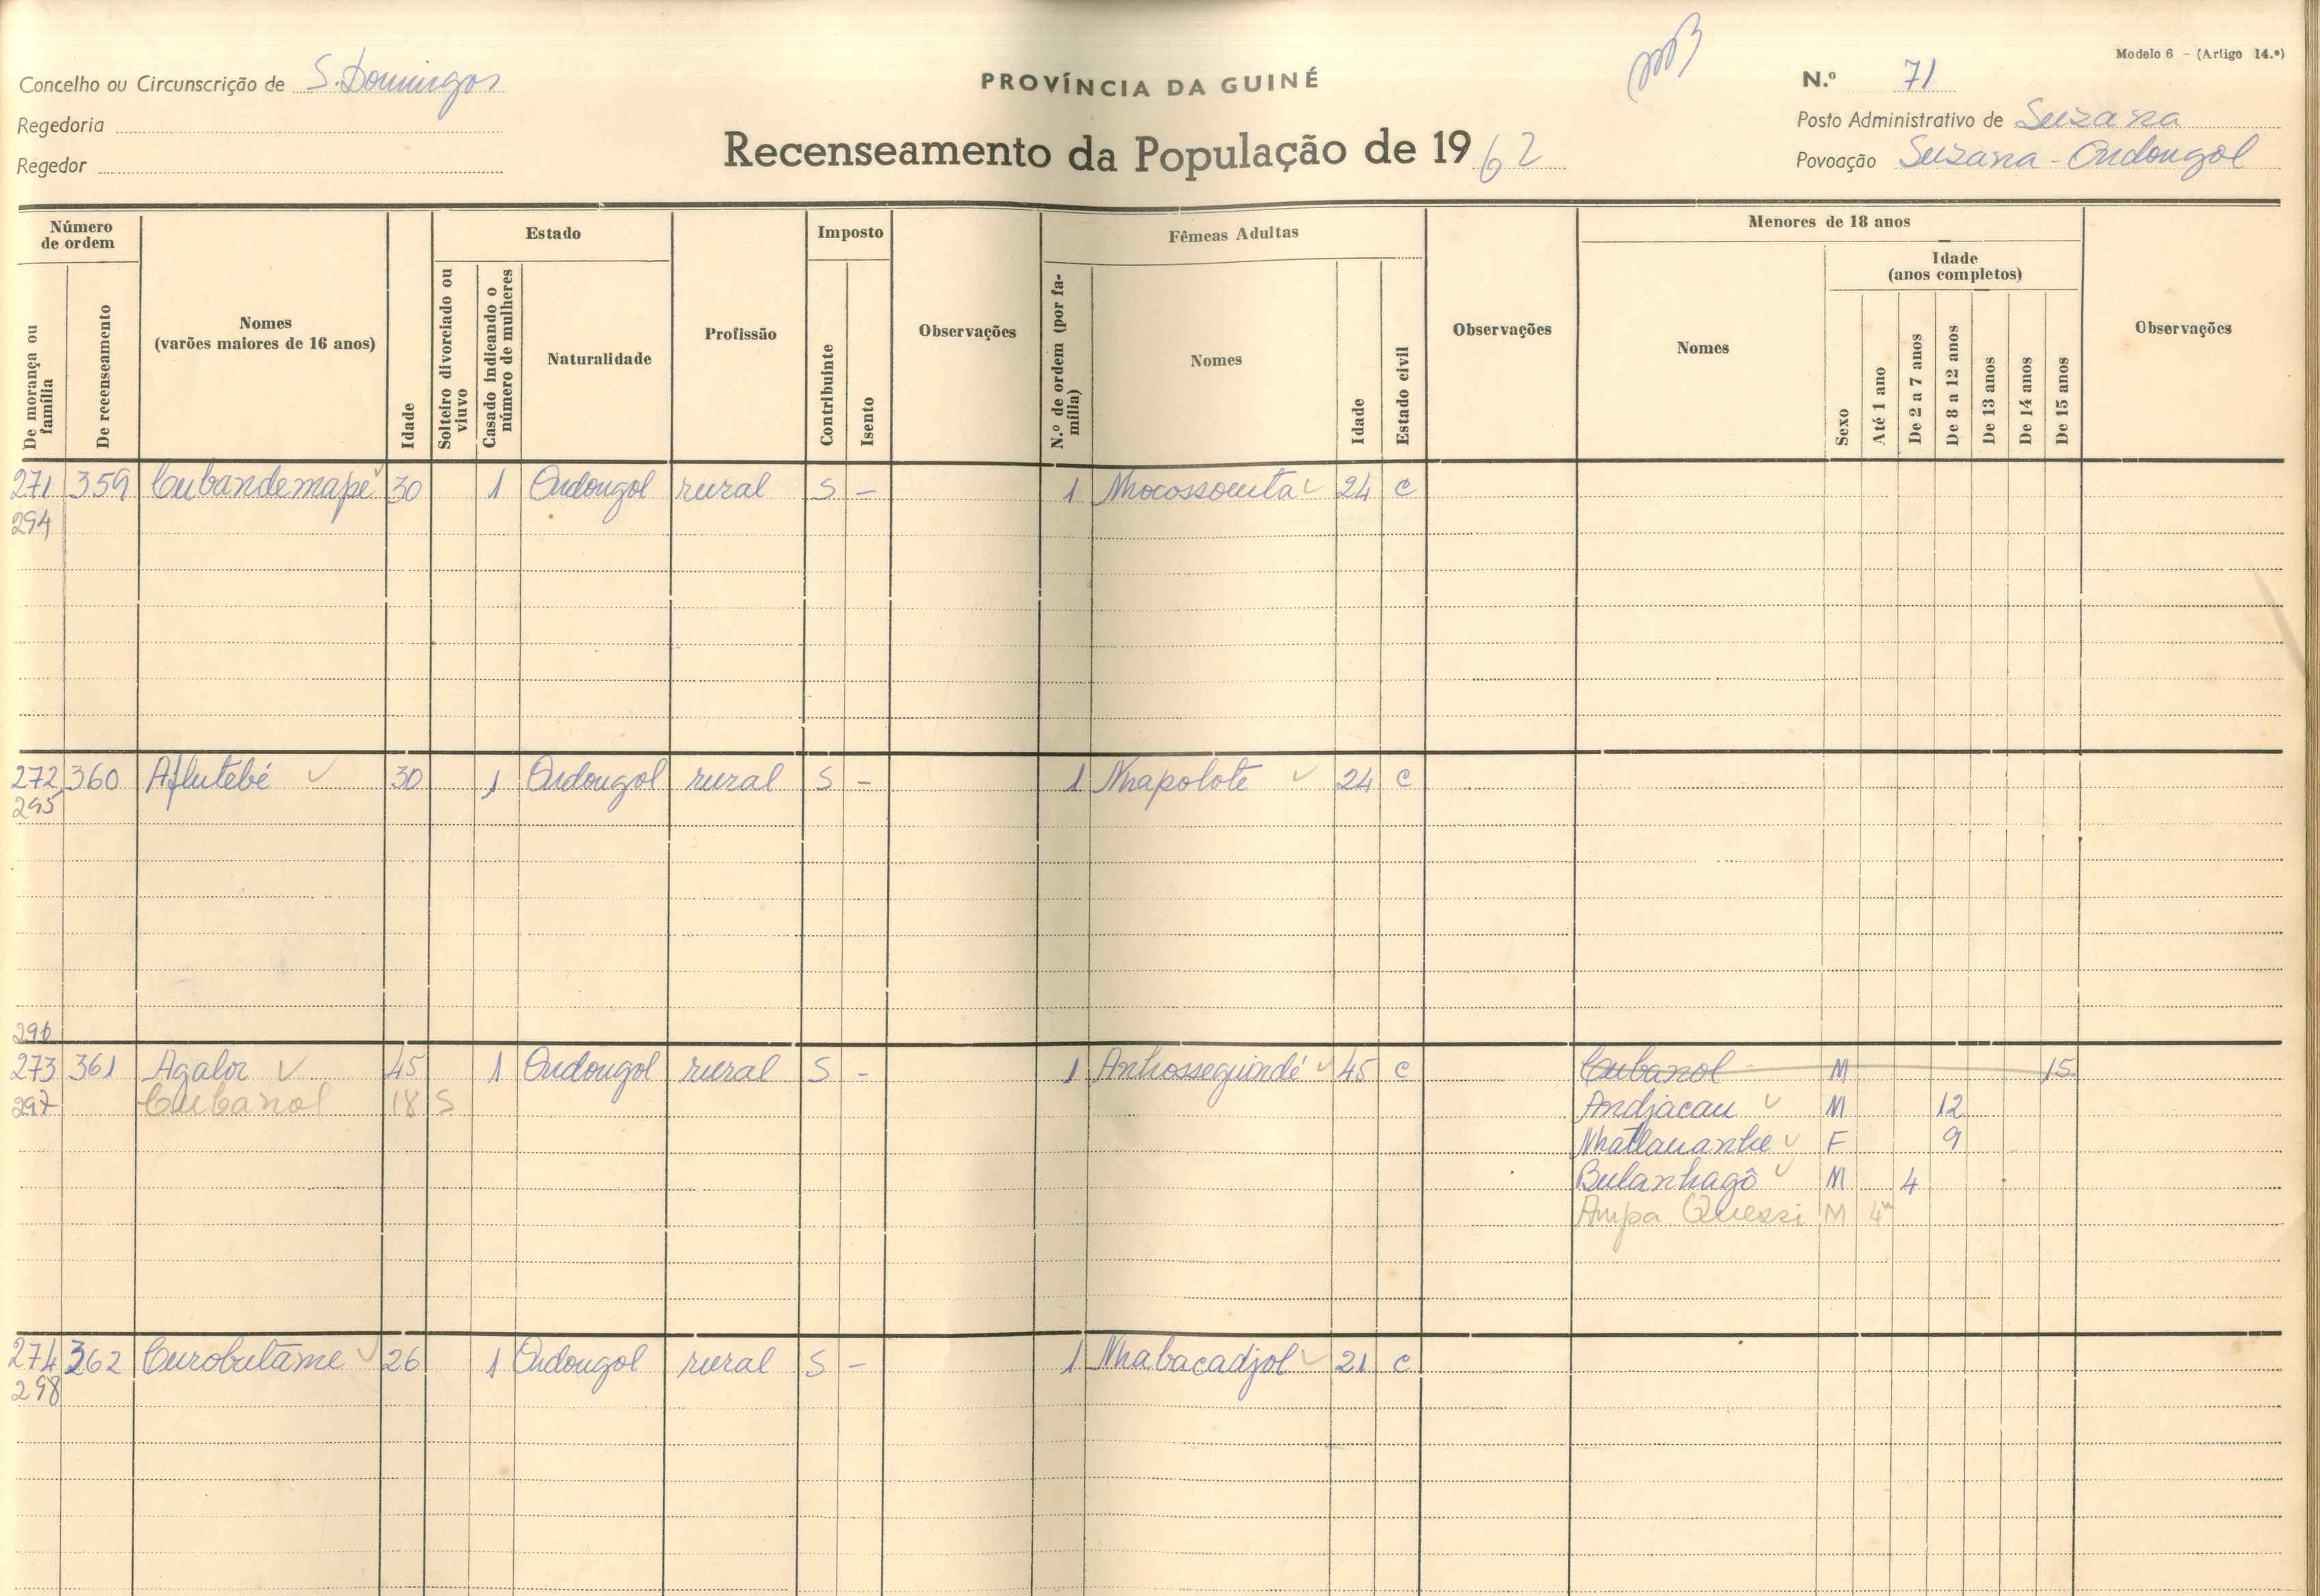 Modelo 6 - (Artigo 14.º)
Concelho ou Circunscrição de S. Domingos
PROVÍNCIA DA GUINÉ
N.º 71
Regedoria
Posto Administrativo de Suzana
Regedor
Recenseamento da População de 1962
Povoação Suzana - Ondongol
Número de ordem
De morança ou família
De recenseamento
Nomes
(varões maiores de 16 anos)
Idade
Estado
Solteiro divorciado ou viuvo
Casado indicando o número de mulheres
Naturalidade
Profissão
Imposto
Contribuinte
Isento
Observações
Fêmeas Adultas
N.º de ordem (por família)
Nomes
Idade
Estado civil
Observações
Menores de 18 anos
Nomes
Sexo
Idade
(anos completos)
Até 1 ano
De 2 a 7 anos
De 8 a 12 anos
De 13 anos
De 14 anos
De 15 anos
Observações
271 359 Cubandemapé 30 1 Ondongol rural S - 1 Nhocossouta 24 C
294
272 360 Aflutébé 30 1 Ondongol rural S - 1 Nhapolote 24 C
295
296
273 361 Agalor 45 1 Ondongol rural S - 1 Anhosseguindé 45 C Cubanol M 15
297 Cubanol 18 S Andjacau M 12
F 9
Bulanhagô M 4
Ampa Quessi M 4m
274 362 Curobutame 26 1 Ondongol rural S - 1 Nhabacadjol 21 C
298